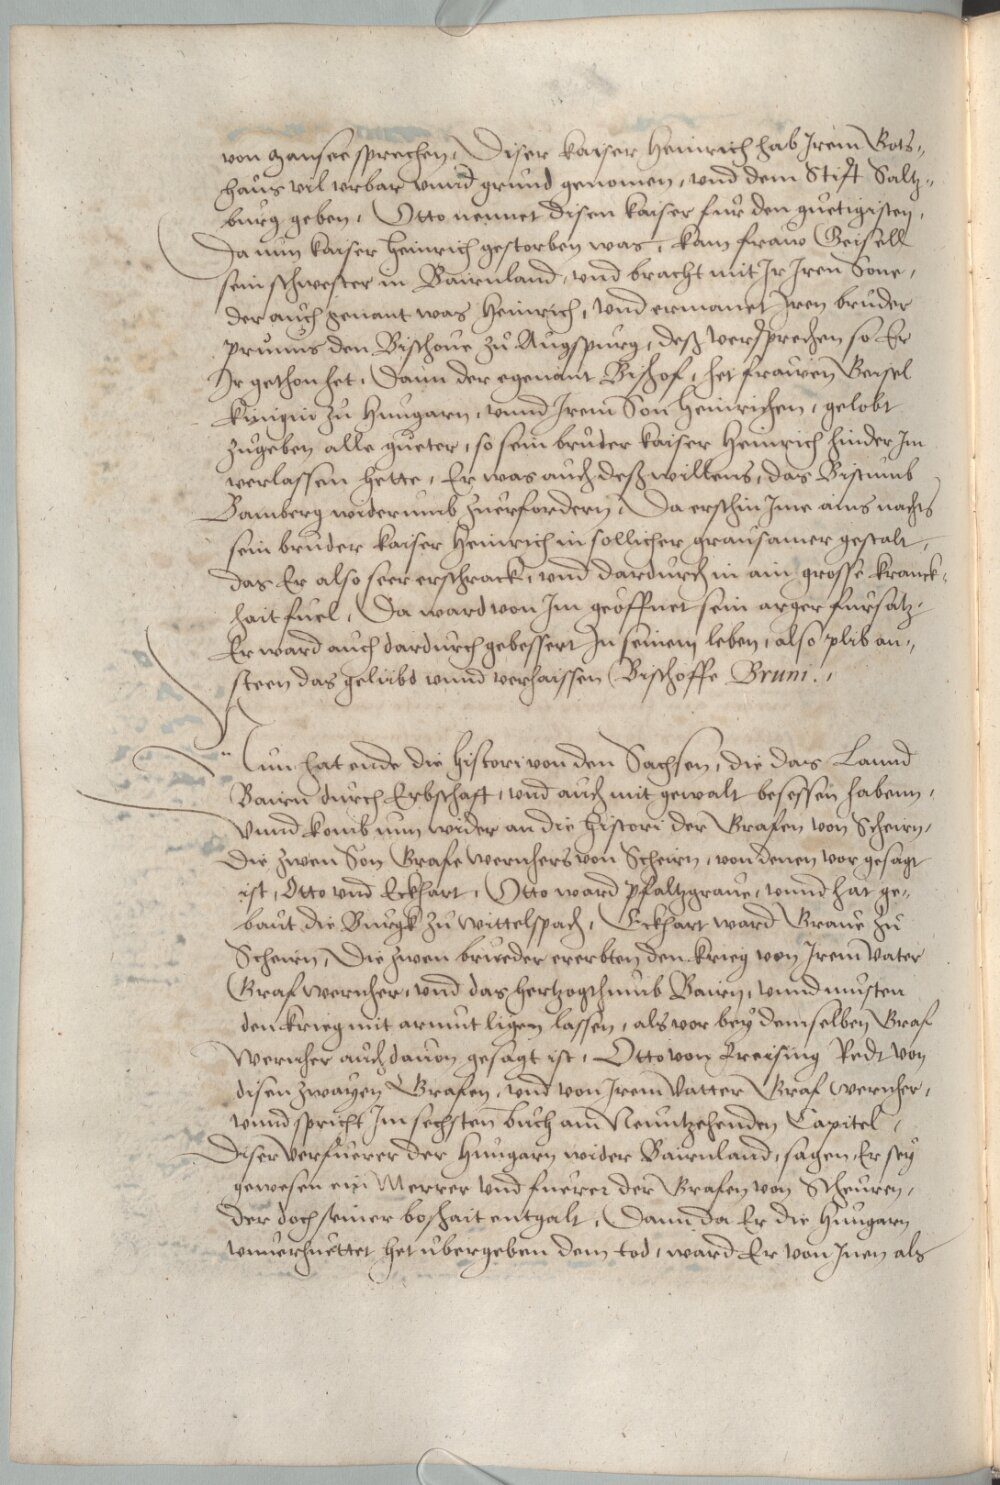 von Mansee sprechen, Diser kaiser Heinrich hab Irem Gots-
haus vil urbar unnd grund genomen, und dem Stifft Saltz-
burg geben, Otto nennet disen kaiser fur den guetigisten,
Da nun kaiser Heinrich gestorben was, kam fraw Geisell
sein schwester in Bairnland, und bracht mit Ir Iren Sone,
der auch genant was Heinrich, und ermanet Iren bruder
prunus den Bischove zu Augspurg, deß versprechen so Er
Ir gethon het, Dann der egenant Bischof, het frawen Geisel
kunigin zu Hungarn, unnd Irem Son Heinrichen, gelobt
zugeben alle gueter, so sein bruder kaiser Heinrich hinder Im
verlassen hette, Er was auch deß willens, das Bistumb
Bamberg widerumb zuerfordern, Da erschin Ime ains nachts
sein bruder kaiser Heinrich in sollicher grausamer gestalt,
das Er also seer erschrack, und dardurch in ain grosse kranck-
hait fuel, Da ward von Im geöffnet sein arger fursatz,
Er ward auch dardurch gebessert In seinem leben, also plib an-
steen das gelübd unnd verhaissen Bischoffe Bruni.,
Nun hat ende die histori von den Sachsen, die das Lannd
Bairn durch Erbschafft, und auch mit gewalt besessen habenn,
Unnd komb nun wider an die histori der Grafen von Scheirn,
Die zwen Son Grafe wernhers von Scheirn, von denen vor gesagt
ist, Otto und Eckhart, Otto ward pfaltzgrave, unnd hat ge-
baut die Burgk zu wittelspach, Eckhart ward Grave zu
Scheirn, Die zwen brueder ererbten den krieg von Irem Vater
Graf wernher, und das hertzogthumb Bairn, unnd musten
den krieg mit armut ligen lassen, als vor bey demselben Graf
Wernher auch davon gesagt ist, Otto von Freising Redt von
disen zwayen Grafen, und von Irem Vatter Graf wernher,
unnd spricht Im sechsten buch am Neuntzehenden Capitel,
Diser verfuerer der Hungarn wider Bairnland, sagen, Er sey
gewesen ein Merrer und fuerer der Grafen von Scheuren,
der doch seiner boshait entgalt, Dann da Er die Hungarn
unverhuettet het ubergeben dem tod, ward Er von Inen als